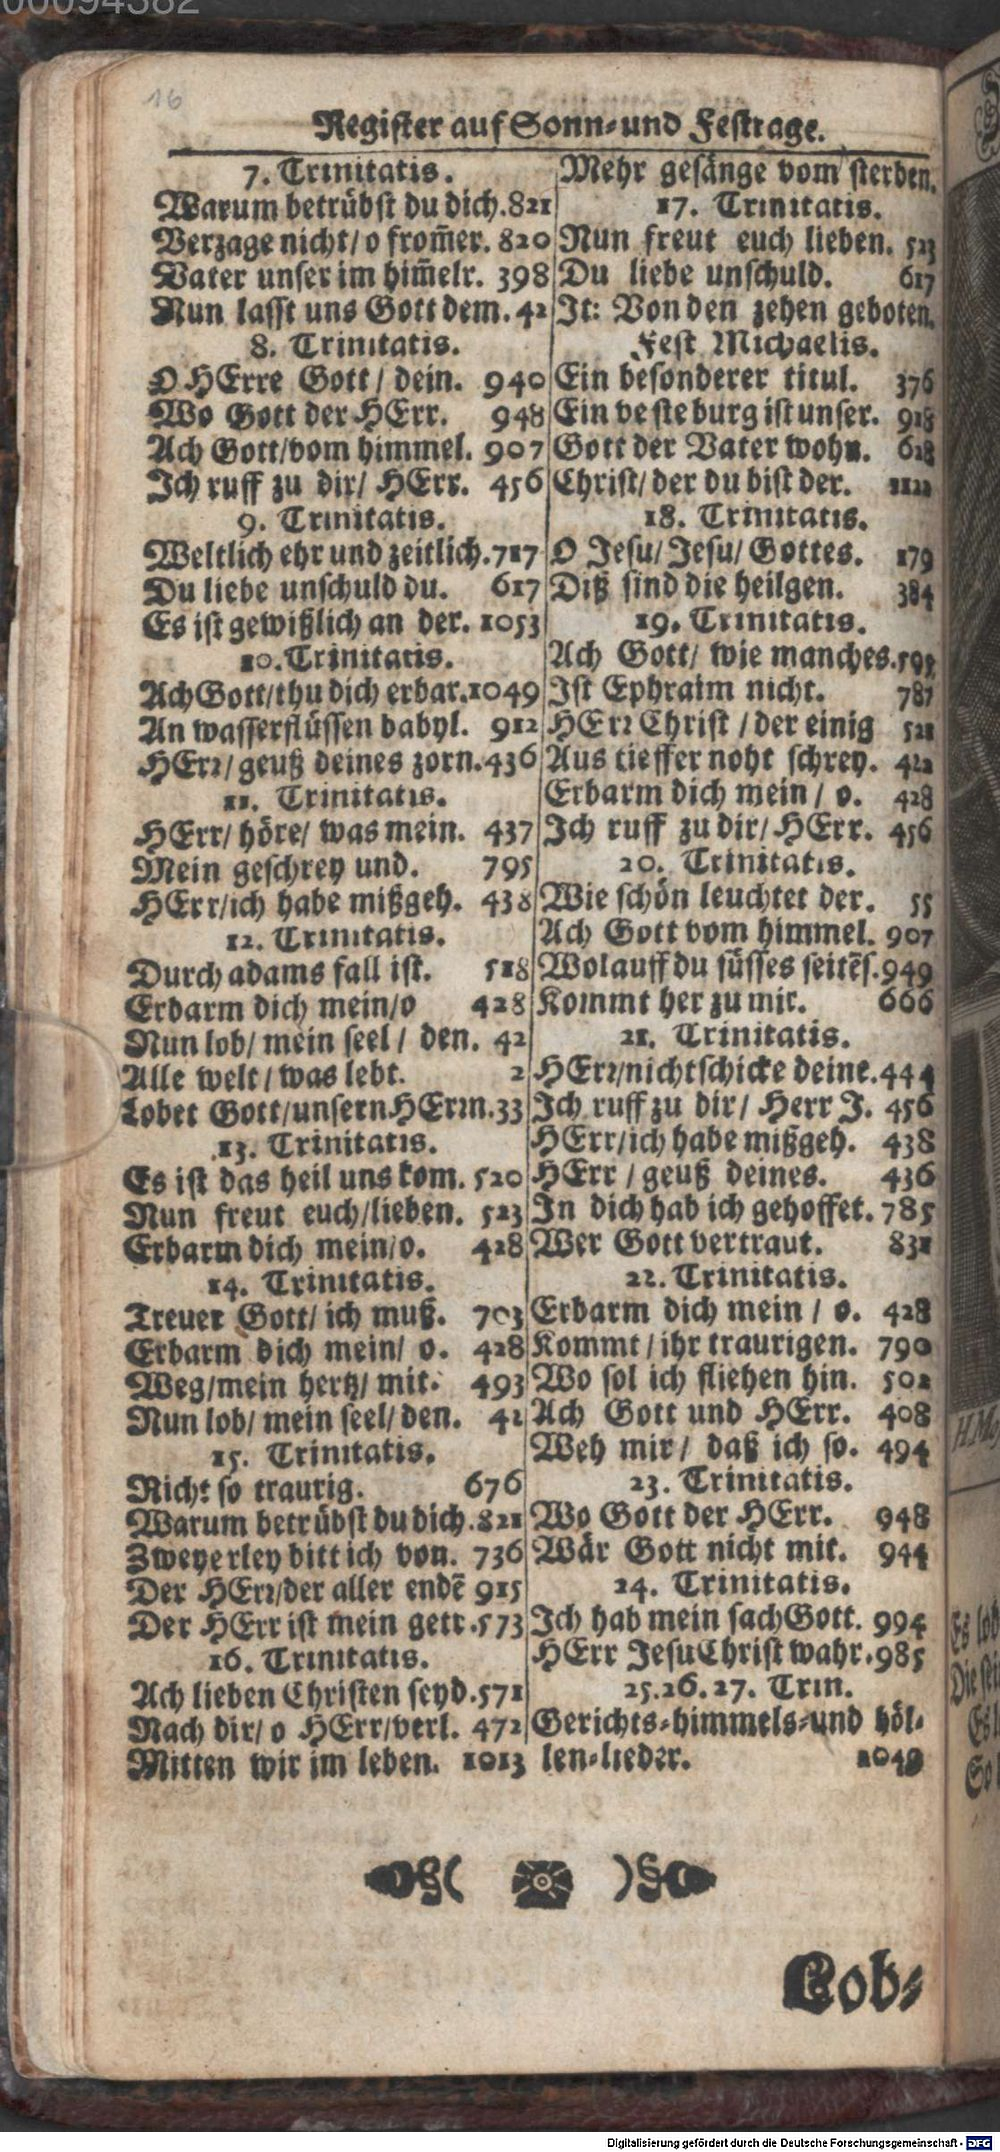 00094382
16
Register auf Sonn-und Festtage.
7. Trinitatis.
Warum betrübst du dich. 821
Verzage nicht/ o from̃er. 820
Vater unser im him̃elr. 398
Nun lasst uns Gott dem. 42
8. Trinitatis.
O HErre Gott / dein. 940
Wo Gott der HErr. 948
Ach Gott/vom himmel. 907
Ich ruff zu dir/ HErr. 456
9. Trinitatis.
Weltlich ehr und zeitlich. 717
Du liebe unschuld du. 617
Es ist gewißlich an der. 1053
10. Trinitatis.
Ach Gott/thu dich erbar. 1049
An wasserflüssen babyl. 912
HErr/ geuß deines zorn. 436
11. Trinitatis.
HErr/ höre/ was mein. 437
Mein geschrey und. 795
HErr/ich habe mißgeh. 438
12. Trinitatis.
Durch adams fall ist. 518
Erbarm dich mein/o 428
Nun lob/ mein seel / den. 42
Alle welt / was lebt. 2
Lobet Gott/unsern HErrn. 33
13. Trinitatis.
Es ist das heil uns kom. 520
Nun freut euch/lieben. 523
Erbarm dich mein/o. 428
14. Trinitatis.
Treuer Gott/ ich muß. 703
Erbarm dich mein/ o. 428
Weg/mein hertz/ mit. 493
Nun lob/ mein seel/ den. 42
15. Trinitatis.
Nicht so traurig. 676
Warum betrübst du dich. 821
Zweyerley bitt ich von. 736
Der HErr/der aller endẽ 915
Der HErr ist mein getr. 573
16. Trinitatis.
Ach lieben Christen seyd. 571
Nach dir/ o HErr/verl. 472
Mitten wir im leben. 1013
Mehr gesänge vom sterben.
17. Trinitatis.
Nun freut euch lieben. 523
Du liebe unschuld. 617
It: Von den zehen geboten.
Fest Michaelis.
Ein besonderer titul. 376
Ein veste burg ist unser. 918
Gott der Vater wohn. 628
Christ/ der du bist der. 1122
18. Trinitatis.
O Jesu/ Jesu/ Gottes. 179
Diß sind die heilgen. 384
19. Trinitatis.
Ach Gott/ wie manches.
Ist Ephraim nicht. 787
HErr Christ / der einig 521
Aus tieffer noht schrey. 422
Erbarm dich mein / o. 428
Ich ruff zu dir/ HErr. 456
20. Trinitatis.
Wie schön leuchtet der. 55
Ach Gott vom himmel. 907
Wolauff du süsses seitẽs. 949
Kommt her zu mir. 666
21. Trinitatis.
HErr/nicht schicke deine. 444
Ich ruff zu dir/ Herr J. 456
HErr/ich habe mißgeh. 438
HErr / geuß deines. 436
In dich hab ich gehoffet. 785
Wer Gott vertraut. 831
22. Trinitatis.
Erbarm dich mein / o. 428
Kommt / ihr traurigen. 790
Wo sol ich fliehen hin. 502
Ach Gott und HErr. 408
Weh mir / daß ich so. 494
23. Trinitatis.
Wo Gott der HErr. 948
Wär Gott nicht mit. 944
24. Trinitatis.
Ich hab mein sach Gott. 994
HErr Jesu Christ wahr. 985
25. 26. 27. Trin.
Gerichts-himmels-und höl-
len-lieder. 1049
Lob-
Digitalisierung gefördert durch die Deutsche Forschungsgemeinschaft - DFG